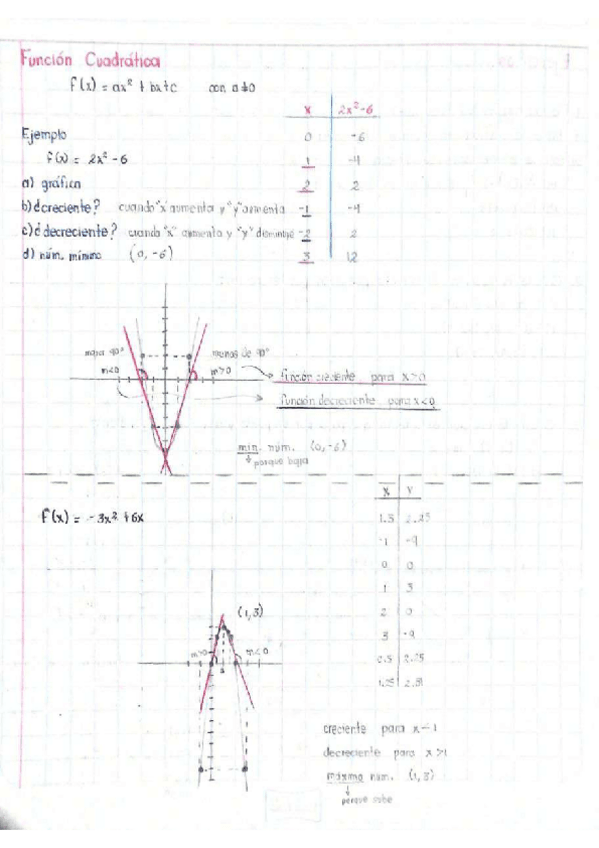 Función Cuadrática
f(x) = ax² + bx + c con a≠0
x 2x²-6
Ejemplo 0 -6
f(x) = 2x² - 6 1 -4
a) gráfica 2 2
b) ¿creciente? cuando "x" aumenta y "y" aumenta -1 -4
c) ¿decreciente? cuando "x" aumenta y "y" -2 2
d) núm. mínimo (0, -6) 3 12
90° menos de 90°
m<0 m>0
función creciente para x>0
función decreciente para x<0
min. núm. (0,-6)
porque baja
x y
f(x) = -3x² + 6x 1.5 2.25
-1 -9
0 0
1 3
2 0
(1,3)
3 -9
m>0 m<0
2.25
creciente para
decreciente para x>1
máximo núm. (1,3)
porque sube